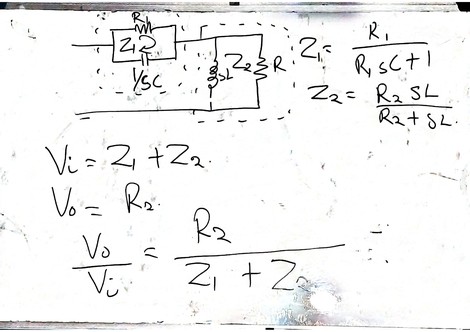 R1
Z1
1/SC
SL
Z2
R
Z1 = R1 / R1 SC + 1
Z2 = R2 SL / R2 + SL
Vi = Z1 + Z2
Vo = R2
Vo / Vi = R2 / Z1 + Z2